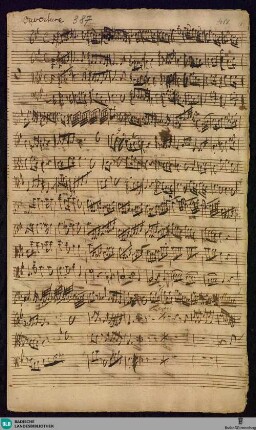 Ouverture 387
BADISCHE
LANDESBIBLIOTHEK
Baden-Württemberg